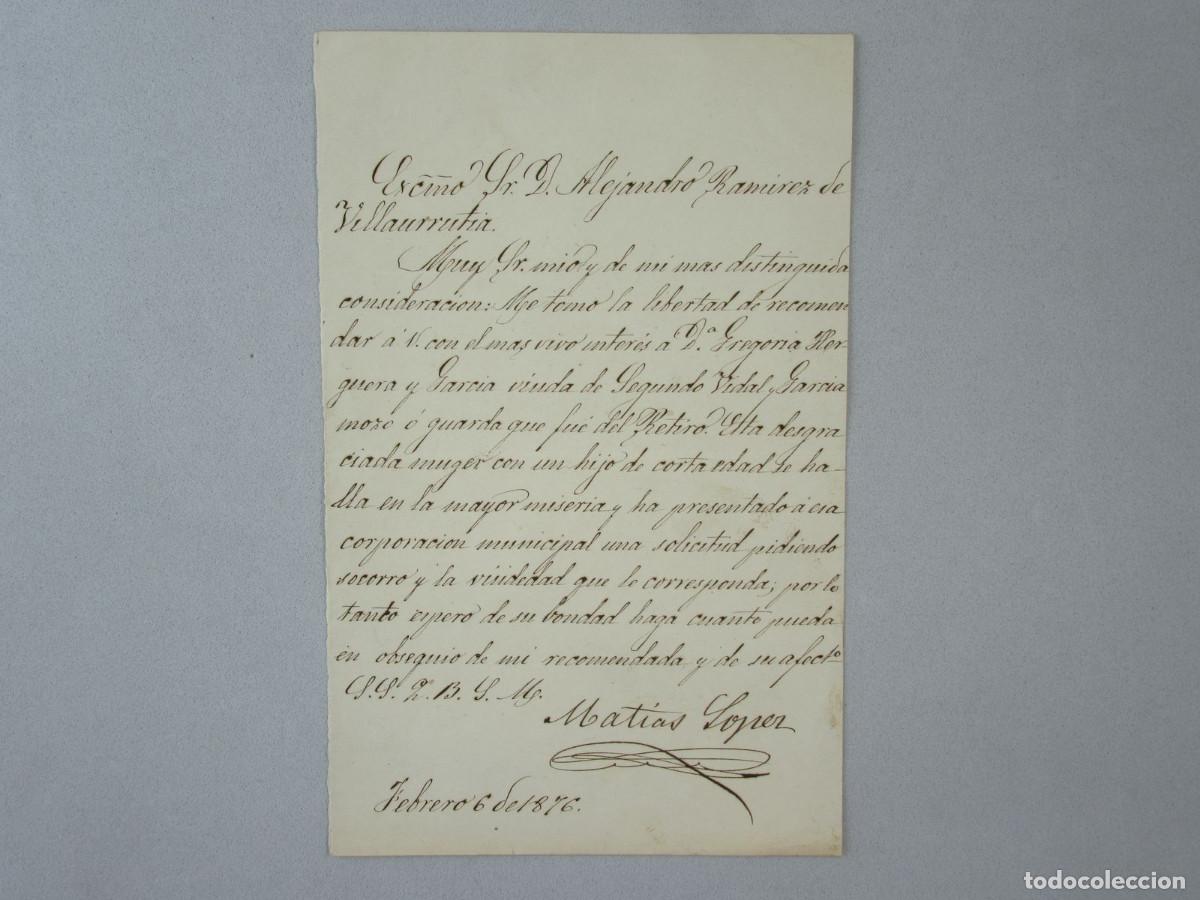 Excmo Sr. D. Alejandro Ramirez de
Villaurrutia.
Muy Sr. mio y de mi mas distinguida
consideracion: Me tomo la libertad de recomen
dar á V. con el mas vivo interés a D.ª Gregoria Her-
guera y Garcia viuda de Segundo Vidal y Garcia
mozo ó guarda que fué del Retiro. Esta desgra
ciada muger con un hijo de corta edad se ha-
lla en la mayor miseria y ha presentado á esa
corporacion municipal una solicitud pidiendo
socorro y la viudedad que le corresponda; por lo
tanto espero de su bondad haga cuanto pueda
en obsequio de mi recomendada y de su afecto
S.S. Q. B. S. M.
Matias Lopez
Febrero 6 de 1876.
todocoleccion